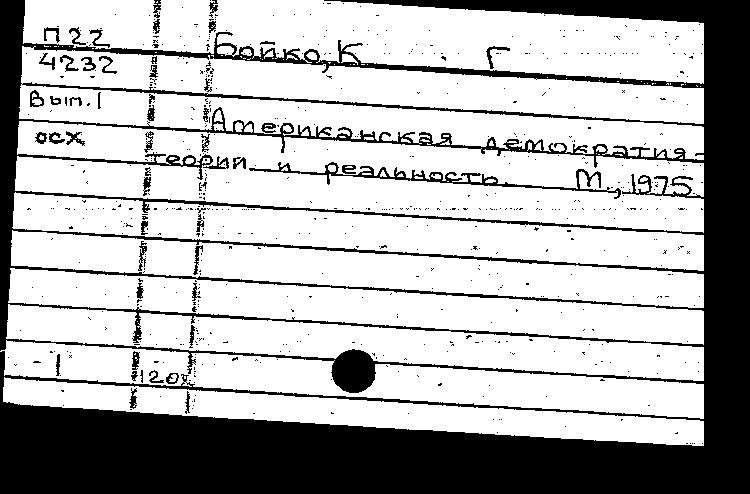 П22 Бойко, К. Г
4232
Вып. 1
Американская демократия-
осх
теории и реальность. М., 1975
1 120х